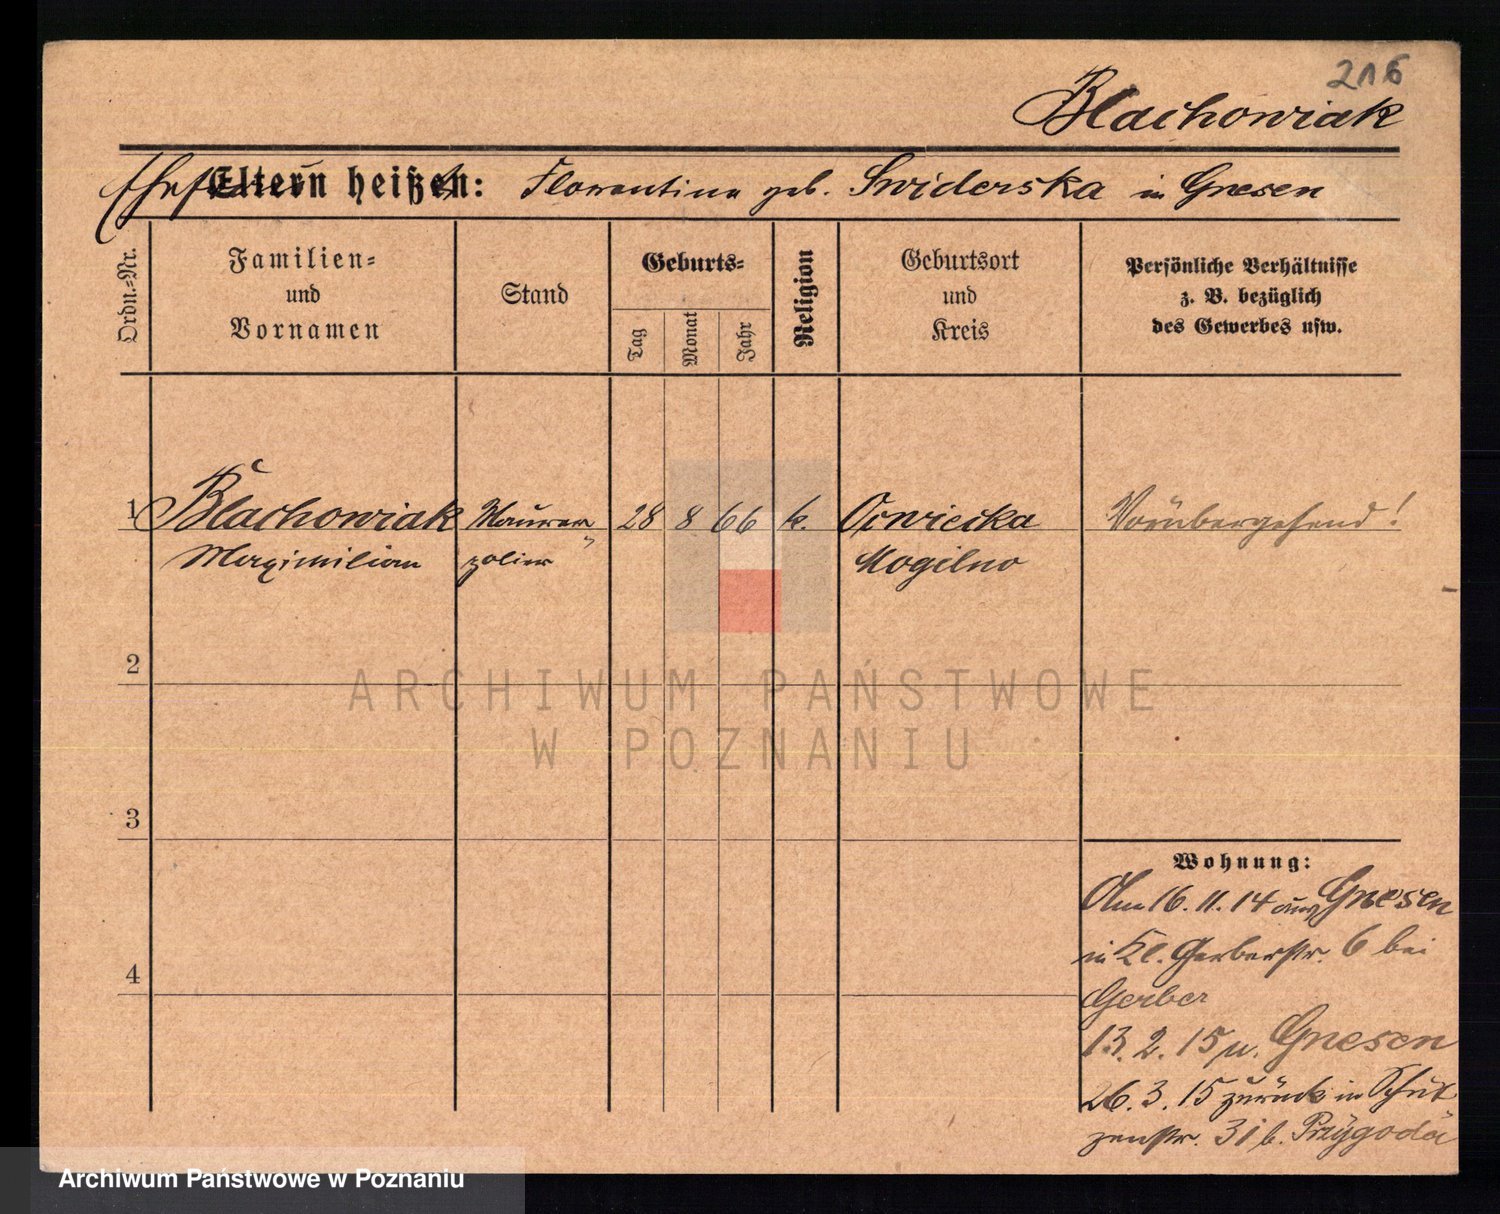 216
Blachowiak
Ehefrau
Eltern heißen: Florentine geb. Swiderska in Gnesen
Ordn.-Nr.
Familien-
und
Vornamen
Stand
Geburts-
Tag
Monat
Jahr
Religion
Geburtsort
und
Kreis
Persönliche Verhältnisse
z. B. bezüglich
des Gewerbes usw.
1 Blachowiak Maurer 28 8 66 k. Vorübergehend!
Maximilian polier Mogilno
2
ARCHIWUM PAŃSTWOWE
W POZNANIU
3
Wohnung:
Am 16. 11. 14 aus Gnesen
in Kl. Gerberstr. 6 bei
4
Gerber
13. 2. 15 n. Gnesen
26. 3. 15 zurück in Schüt
zenstr. 31 b. Przygoda
Archiwum Państwowe w Poznaniu